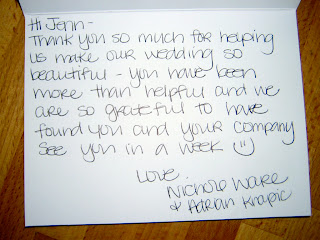 Hi Jenn-
Thank you so much for helping
us make our wedding so
beautiful - you have been
more than helpful and we
are so grateful to have
found you and your company
See you in a week :)
Love,
Nichole Ware
& Adrian Knapic